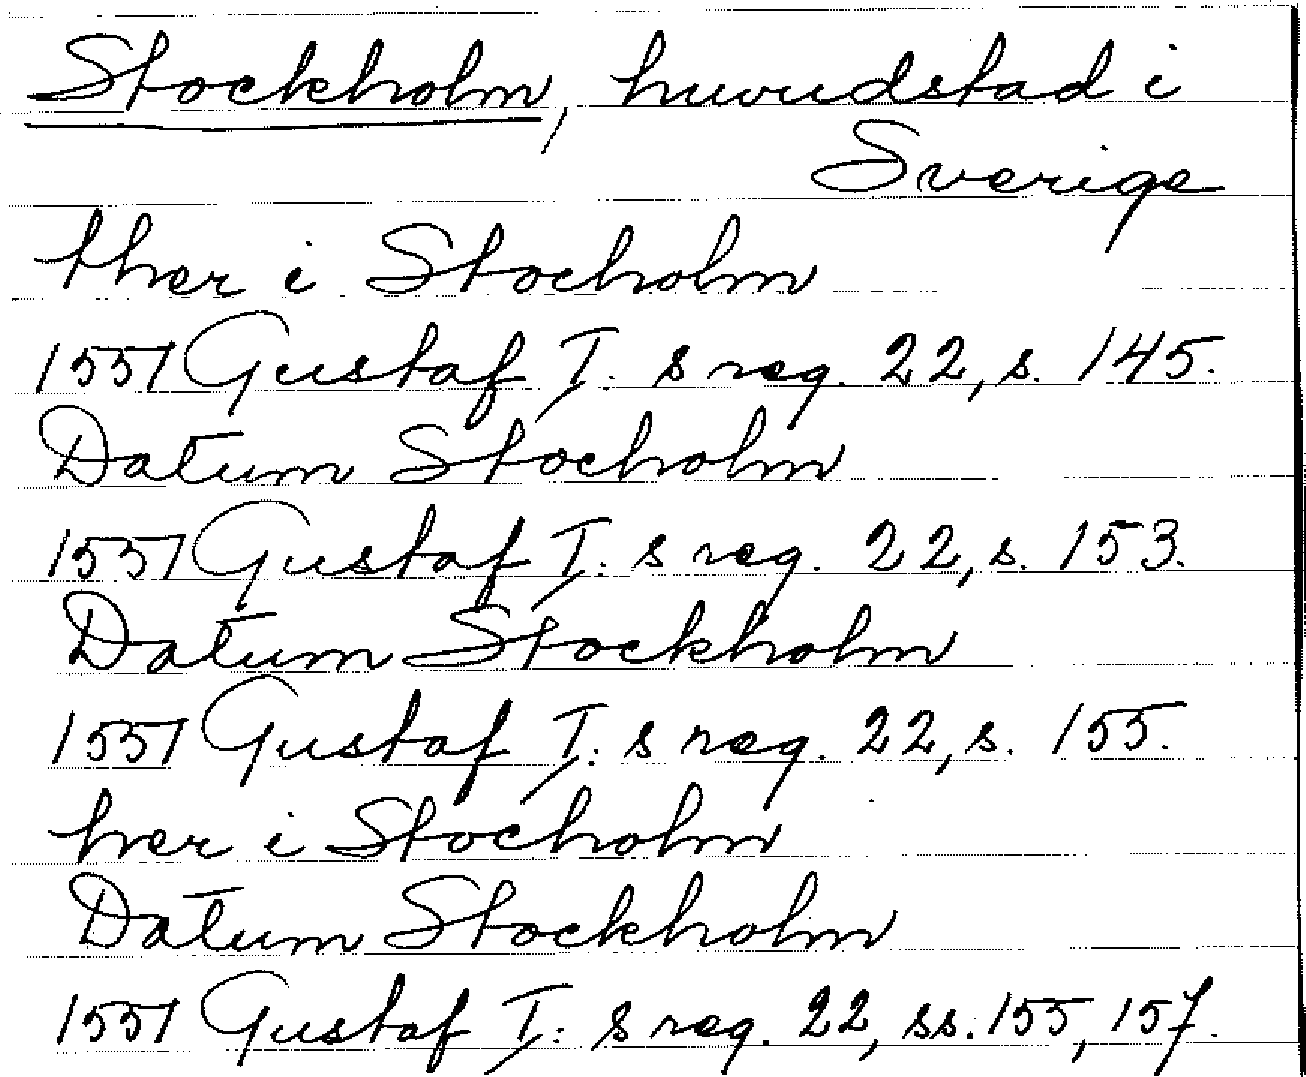 Stockholm, huvudstad i
Sverige
ther i Stocholm
1551 Gustaf I:s reg. 22, s. 145.
Datum Stocholm
1551 Gustaf I:s reg. 22, s. 153.
Datum Stockholm
1551 Gustaf I:s reg. 22, s. 155.
her i Stocholm
Datum Stockholm
1551 Gustaf I:s reg. 22, ss. 155, 157.